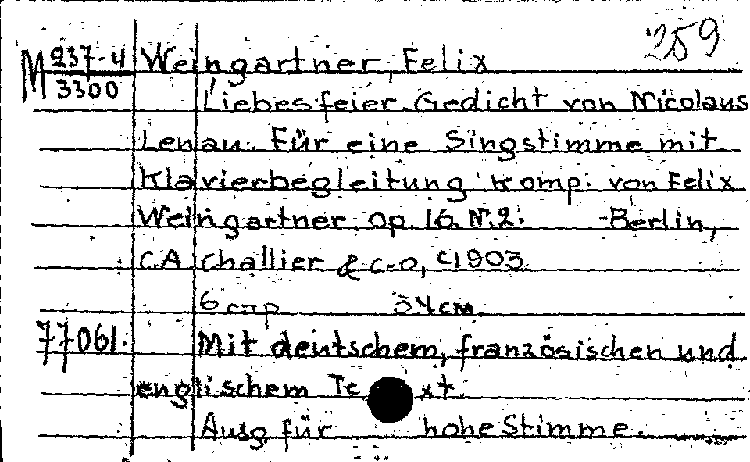 259
M 237-4 Weingartner, Felix
3300
Liebesfeier. Gedicht von Nicolaus
Lenau. Für eine Singstimme mit
Klavierbegleitung komp. von Felix
Weingartner. Op. 16. N. 2. -Berlin,
C.A. Challier & C-o, c1903.
6 стр. 34 см.
77061. Mit deutschem, französischen und
englischem Te xt.
Ausg. für hohe Stimme.